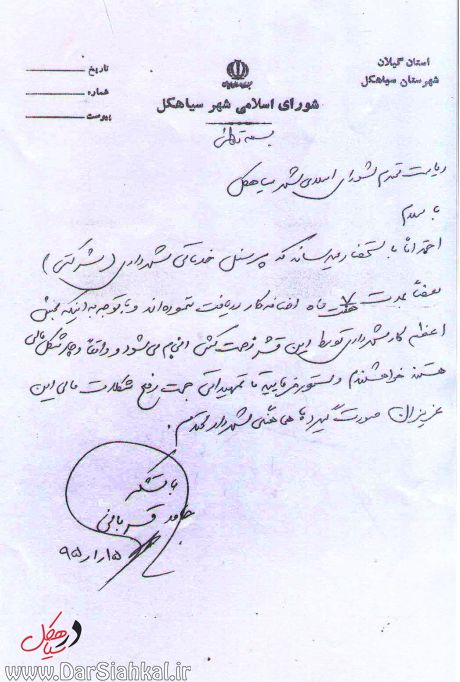 استان گیلان
شهرستان سیاهکل
شورای اسلامی شهر سیاهکل
تاریخ
شماره
پیوست
بسمه تعالی
ریاست محترم شورای اسلامی شهر سیاهکل
با سلام
احتراماً باستحضار میرساند که پرسنل خدماتی شهرداری (شرکتی)
بعضاً بمدت ۷ هفت ماه اضافه کار دریافت ننموده اند و با توجه به اینکه بخش
اعظم کار شهرداری توسط این قشر زحمت کش انجام می شود و واقعاً دچار مشکل مالی
هستند خواهشمندم دستور فرمایید تا تمهیداتی جهت رفع مشکلات مالی این
عزیزان صورت گیرد با هماهنگی شهردار محترم.
با تشکر
حامد قربانی
۹۵/۱/۱۵
در سیاهکل
www.DarSiahkal.ir